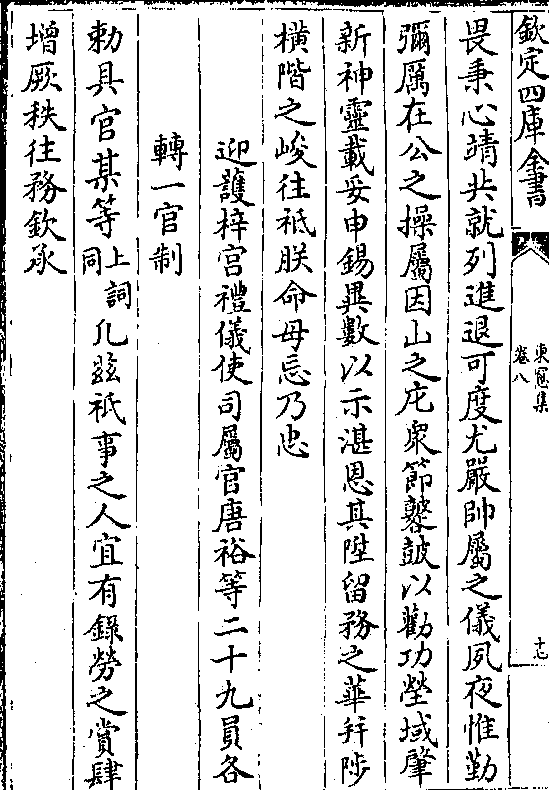 欽定四庫全書
東窗集
卷八
十七
畏秉心靖共就列進退可度尤嚴帥屬之儀夙夜惟勤
彌厲在公之操屬因山之庀衆節鼛鼓以勸功塋域肇
新神靈載妥申錫異數以示湛恩其陞留務之華并陟
橫階之峻往祗朕命毋忘乃忠
迎護梓宮禮儀使司屬官唐裕等二十九員各
轉一官制
勅具官某等上詞同凡兹祇事之人宜有錄勞之賞肆
增厥秩往務欽承